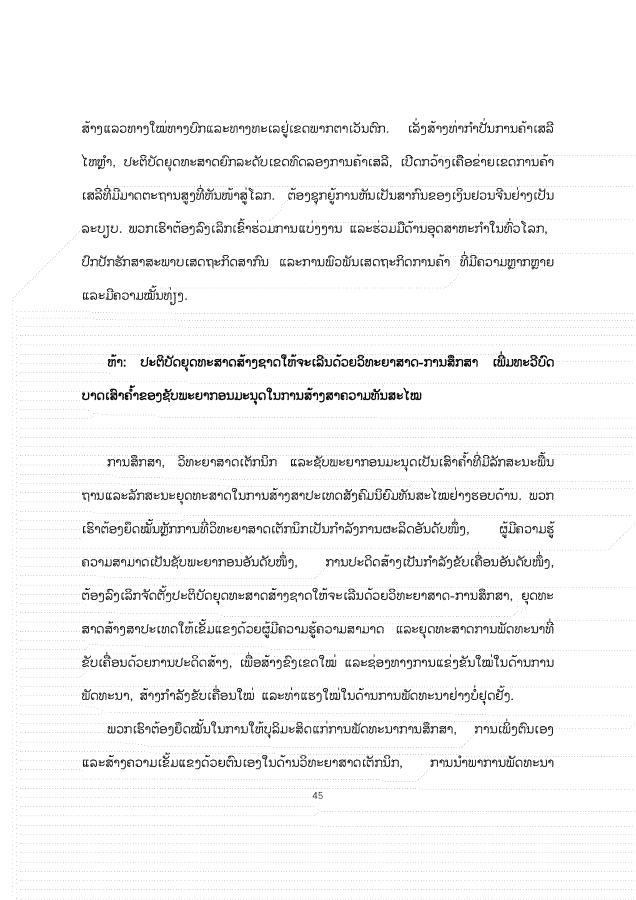 ສ້າງແລວທາງໃໝ່ທາງບົກແລະທາງທະເລຢູ່ເຂດພາກຕາເວັນຕົກ. ເລັ່ງສ້າງທ່າກຳປັ່ນການຄ້າເສລີ
ໄຫຫຼຳ, ປະຕິບັດຍຸດທະສາດຍົກລະດັບເຂດທົດລອງການຄ້າເສລີ, ເປີດກວ້າງເຄືອຂ່າຍເຂດການຄ້າ
ເສລີທີ່ມີມາດຕະຖານສູງທີ່ຫັນໜ້າສູ່ໂລກ. ຕ້ອງຊຸກຍູ້ການຫັນເປັນສາກົນຂອງເງິນຢວນຈີນຢ່າງເປັນ
ລະບຽບ. ພວກເຮົາຕ້ອງລົງເລິກເຂົ້າຮ່ວມການແບ່ງງານ ແລະຮ່ວມມືດ້ານອຸດສາຫະກຳໃນທົ່ວໂລກ,
ປົກປັກຮັກສາສະພາບເສດຖະກິດສາກົນ ແລະການພົວພັນເສດຖະກິດການຄ້າ ທີ່ມີຄວາມຫຼາກຫຼາຍ
ແລະມີຄວາມໝັ້ນທ່ຽງ.
ຫ້າ: ປະຕິບັດຍຸດທະສາດສ້າງຊາດໃຫ້ຈະເລີນດ້ວຍວິທະຍາສາດ-ການສຶກສາ ເພີ່ມທະວີບົດ
ບາດເສົາຄ້ຳຂອງຊັບພະຍາກອນມະນຸດໃນການສ້າງສາຄວາມທັນສະໄໝ
ການສຶກສາ, ວິທະຍາສາດເຕັກນິກ ແລະຊັບພະຍາກອນມະນຸດເປັນເສົາຄ້ຳທີ່ມີລັກສະນະພື້ນ
ຖານແລະລັກສະນະຍຸດທະສາດໃນການສ້າງສາປະເທດສັງຄົມນິຍົມທັນສະໄໝຢ່າງຮອບດ້ານ. ພວກ
ເຮົາຕ້ອງຍຶດໝັ້ນຫຼັກການທີ່ວິທະຍາສາດເຕັກນິກເປັນກຳລັງການຜະລິດອັນດັບໜຶ່ງ, ຜູ້ມີຄວາມຮູ້
ຄວາມສາມາດເປັນຊັບພະຍາກອນອັນດັບໜຶ່ງ, ການປະດິດສ້າງເປັນກຳລັງຂັບເຄື່ອນອັນດັບໜຶ່ງ,
ຕ້ອງລົງເລິກຈັດຕັ້ງປະຕິບັດຍຸດທະສາດສ້າງຊາດໃຫ້ຈະເລີນດ້ວຍວິທະຍາສາດ-ການສຶກສາ, ຍຸດທະ
ສາດສ້າງສາປະເທດໃຫ້ເຂັ້ມແຂງດ້ວຍຜູ້ມີຄວາມຮູ້ຄວາມສາມາດ ແລະຍຸດທະສາດການພັດທະນາທີ່
ຂັບເຄື່ອນດ້ວຍການປະດິດສ້າງ, ເພື່ອສ້າງຂົງເຂດໃໝ່ ແລະຊ່ອງທາງການແຂ່ງຂັນໃໝ່ໃນດ້ານການ
ພັດທະນາ, ສ້າງກຳລັງຂັບເຄື່ອນໃໝ່ ແລະທ່າແຮງໃໝ່ໃນດ້ານການພັດທະນາຢ່າງບໍ່ຢຸດຢັ້ງ.
ພວກເຮົາຕ້ອງຍຶດໝັ້ນໃນການໃຫ້ບຸລິມະສິດແກ່ການພັດທະນາການສຶກສາ, ການເພິ່ງຕົນເອງ
ແລະສ້າງຄວາມເຂັ້ມແຂງດ້ວຍຕົນເອງໃນດ້ານວິທະຍາສາດເຕັກນິກ, ການນຳພາການພັດທະນາ
45